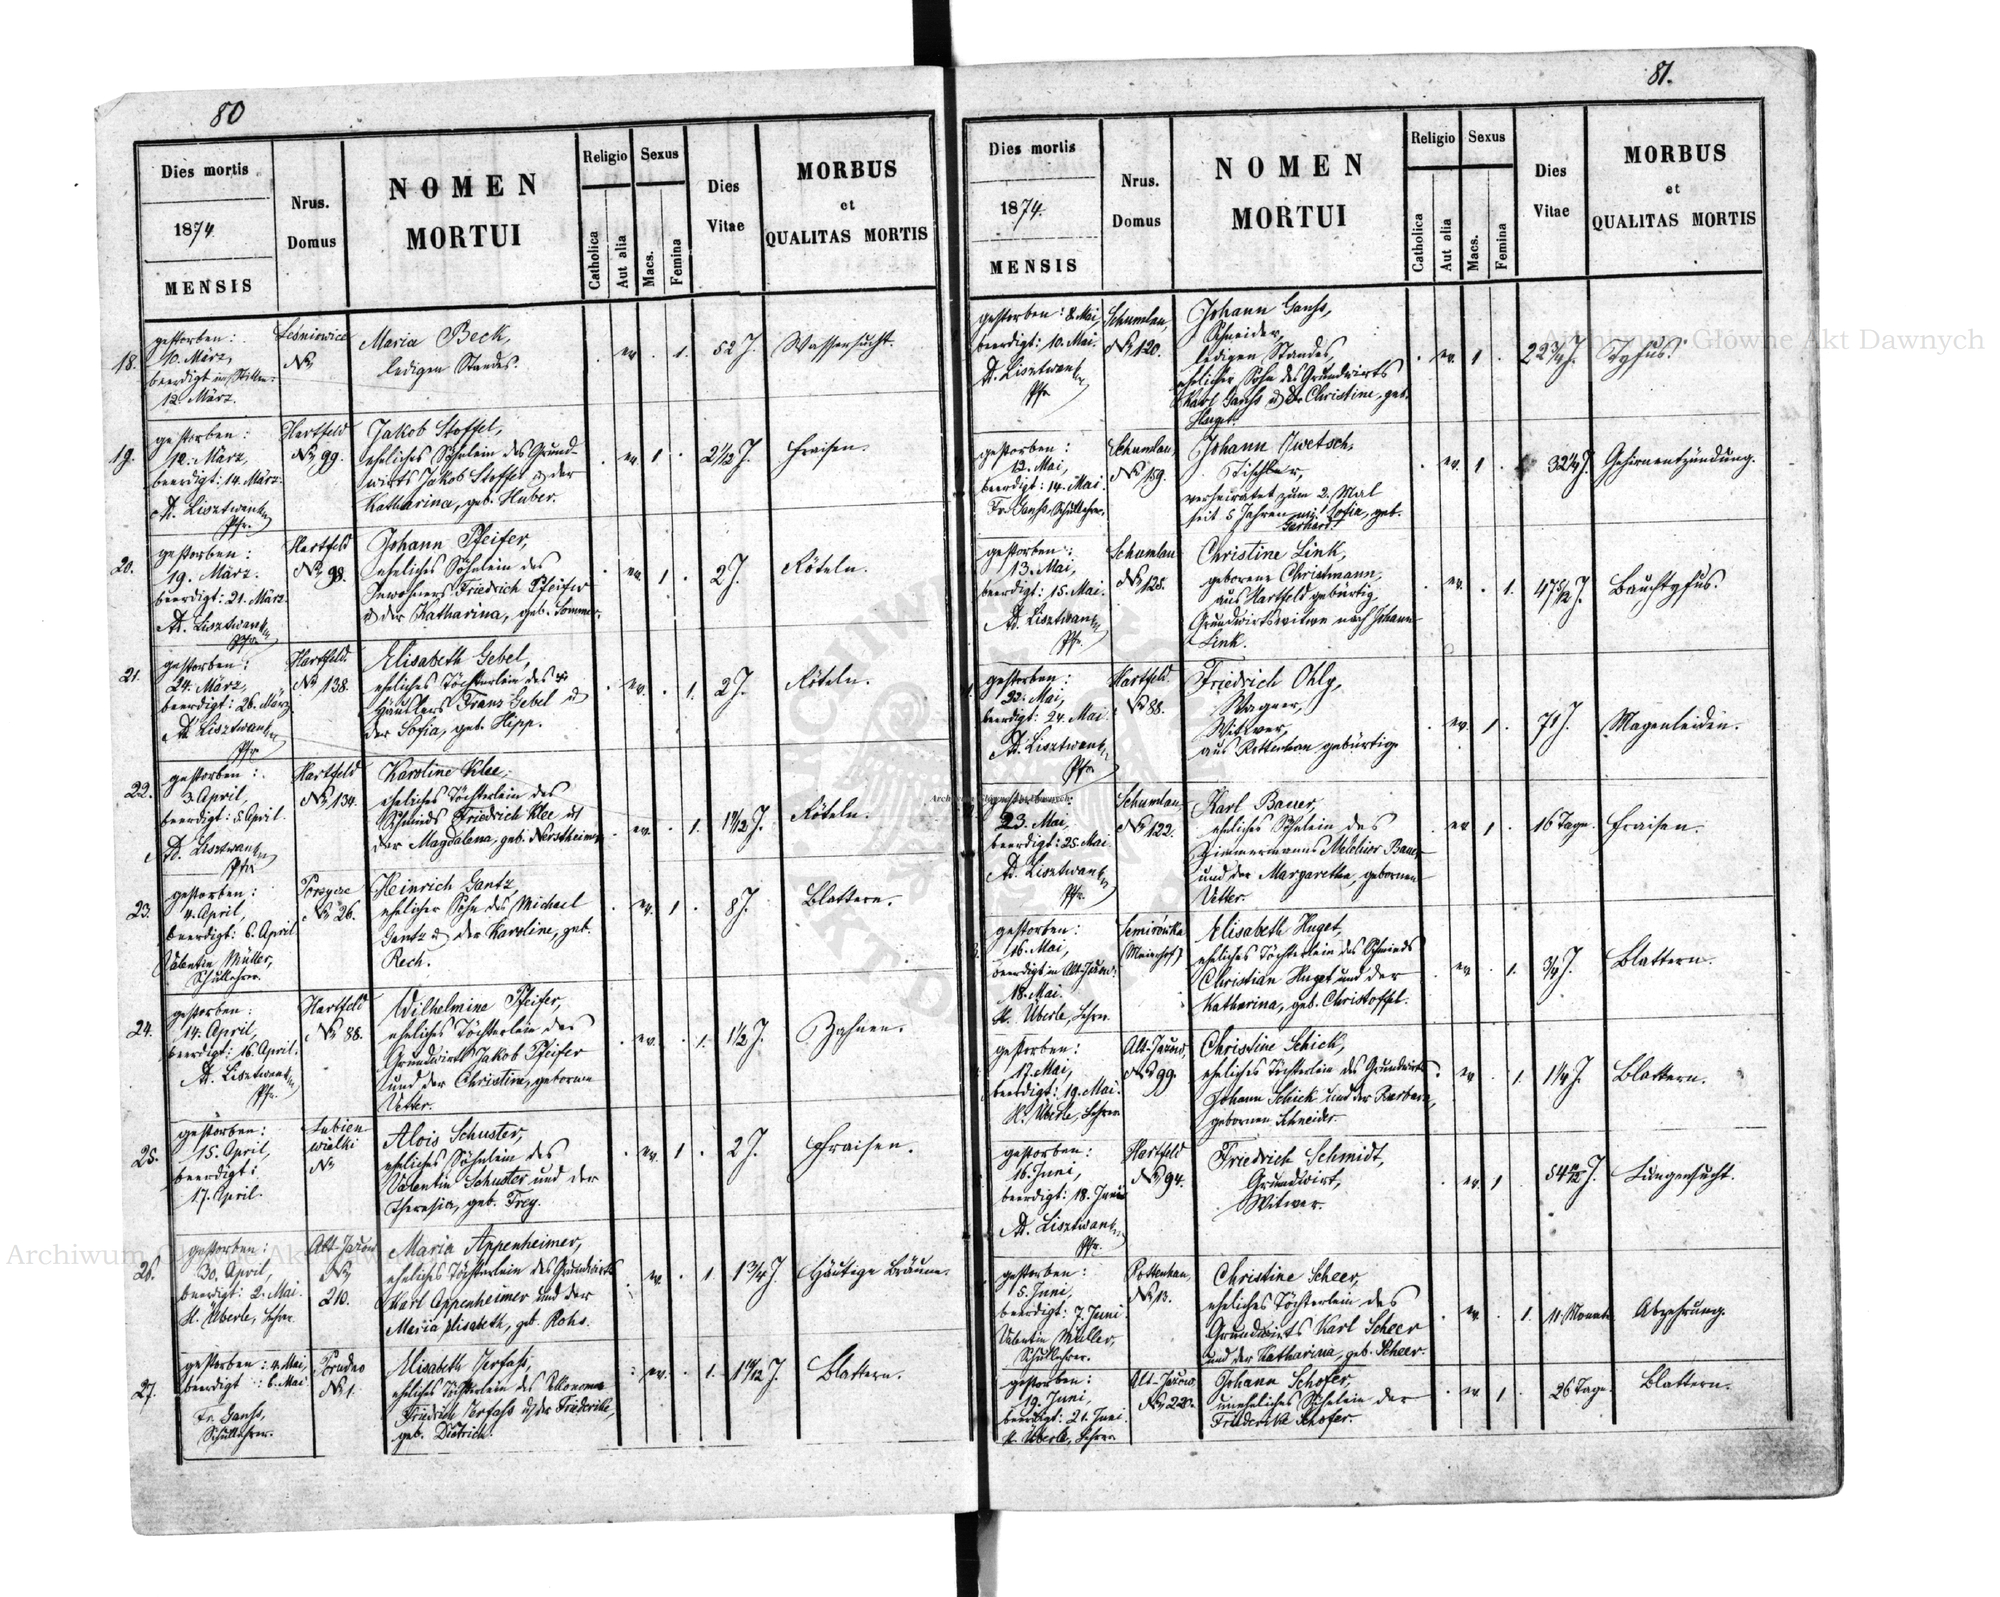 80
Dies mortis
1874.
MENSIS
Nrus.
Domus
NOMEN
MORTUI
Religio
Catholica
Aut alia
Sexus
Macs.
Femina
Dies
Vitae
MORBUS
et
QUALITAS MORTIS
18.
gestorben:
10. März,
beerdigt im Stillen
12. März.
Leśniowice
No
Maria Beck,
ledigen Standes.
ev. 1. 52 J. Wassersucht.
19.
gestorben:
12. März,
beerdigt: 14. März.
A. Lisztwan
Pfr.
Hartfeld
No 99.
Jakob Stoffel,
eheliches Söhnlein des Grund-
wirts Jakob Stoffel u der
Katharina, geb. Huber.
ev. 1 2 1/12 J. Fraisen.
20.
gestorben:
19. März.
beerdigt: 21. März.
A. Lisztwan
Pfr.
Hartfeld
No 98.
Johann Pfeifer,
eheliches Söhnlein des
Inwohners Friedrich Pfeifer
u der Katharina, geb. Sommer.
ev. 1 2 J. Röteln.
21.
gestorben:
24. März,
beerdigt: 26. März
A. Lisztwan
Pfr.
Hartfeld.
No 138.
Elisabeth Gebel,
eheliches Töchterlein des
Häuslers Franz Gebel u
der Sofia, geb. Hipp.
ev. 1. 2 J. Röteln.
22.
gestorben:
3. April,
beerdigt: 5. April.
A. Lisztwan
Pfr
Hartfeld
No 134.
Karoline Klee,
eheliches Töchterlein des
Schmieds Friedrich Klee u
der Magdalena, geb.
ev. 1. J. Röteln.
23.
gestorben:
4. April,
beerdigt: 6. April
Valentin Müller,
Schullehrer.
Porzycze
No 26.
Heinrich Gantz,
ehelicher Sohn des Michael
Gantz u der Karoline, geb.
Rech.
ev. 1 8 J. Blattern.
24.
gestorben:
14. April,
beerdigt: 16. April.
A. Lisztwan
Pfr.
Hartfeld
No 88.
Wilhelmine Pfeifer,
eheliches Töchterlein des
Grundwirts Jakob Pfeifer
und der Christine, geborene
Vetter.
ev. 1. 1 1/2 J. Zahnen.
25.
gestorben:
15. April,
beerdigt:
17. April.
Lubien
wielki
No
Alois Schuster,
eheliches Söhnlein des
Valentin Schuster und der
Theresia, geb. Frey.
ev. 1 2 J. Fraisen.
26.
gestorben:
30. April,
beerdigt: 2. Mai.
H. Überle, Lehrer.
Alt-Jazow
No
210.
Maria Appenheimer,
eheliches Töchterlein des Grundwirts
Karl Appenheimer und der
Maria Elisabeth, geb. Rohs.
ev. 1. 1 3/4 J. Häutige Bräune.
27.
gestorben: 4. Mai,
beerdigt: 6. Mai
Fr. Ganss,
Schullehrer.
No 1.
Elisabeth Serfass,
eheliches Töchterlein des Oekonoms
Friedrich Serfass u der Friederike,
geb. Dietrich.
ev. 1. J. Blattern.
81.
Dies mortis
1874.
MENSIS
Nrus.
Domus
NOMEN
MORTUI
Religio
Catholica
Aut alia
Sexus
Macs.
Femina
Dies
Vitae
MORBUS
et
QUALITAS MORTIS
gestorben: 8. Mai,
beerdigt: 10. Mai.
A. Lisztwan
Pfr
Schumlau,
No 120.
Johann Ganss,
Schneider,
ledigen Standes,
ehelicher Sohn des Grundwirts
Karl Ganss u der Christine, geb.
Huget.
ev. 1 22 3/4 J. Tyfus.
gestorben:
12. Mai,
beerdigt: 14. Mai.
Fr. Ganss, Schullehrer.
Schumlau,
No 159.
Johann Zwetsch,
Tischler,
verheiratet zum 2. Mal
seit 5 Jahren mit Sofia, geb.
Gerhard.
ev. 1 32 1/4 J. Gehirnentzündung.
gestorben:
13. Mai,
beerdigt: 15. Mai.
A. Lisztwan
Pfr.
Schumlau
No 125.
Christine Link,
geborene Christmann,
aus Hartfeld gebürtig,
Grundwirtswitwe nach Johann
Link.
ev. 1. 47 5/12 J. Bauchtyfus.
gestorben:
22. Mai,
beerdigt: 24. Mai.
A. Lisztwan
Pfr.
Hartfeld.
No 88.
Friedrich Ohly,
Wagner,
Witwer,
aus Rottenhan gebürtig.
ev. 1 71 J. Magenleiden.
gestorben:
23. Mai,
beerdigt: 25. Mai.
A. Lisztwan
Pfr.
Schumlau,
No 122.
Karl Bauer,
eheliches Söhnlein des
Zimmermanns Melchior Bauer
und der Margaretha, gebornen
Vetter.
ev 1 16 Tage. Fraisen.
gestorben:
16. Mai,
beerdigt in Alt-Jazow.
18. Mai.
H. Überle, Lehrer.
Semirówka
(Maierhof)
Elisabeth Huget,
eheliches Töchterlein des Schmieds
Christian Huget und der
Katharina, geb. Christoffel.
ev 1. 3/4 J. Blattern.
gestorben:
17. Mai,
beerdigt: 19. Mai.
H. Überle, Lehrer
Alt-Jazow,
No 99.
Christine Schick,
eheliches Töchterlein des Grundwirts
Johann Schick und der Barbara,
gebornen Schneider.
ev 1. 1 1/4 J. Blattern.
gestorben:
16. Juni,
beerdigt: 18. Juni
A. Lisztwan
Pfr.
Hartfeld
No 94.
Friedrich Schmidt,
Grundwirt,
Witwer.
ev. 1 J. Lungensucht.
gestorben:
5. Juni,
beerdigt: 7. Juni.
Valentin Müller,
Schullehrer.
Rottenhan,
No 13.
Christine Scheer,
eheliches Töchterlein des
Grundwirts Karl Scheer
und der Katharina, geb. Scheer.
ev. 1. 11. Monate Abzehrung.
gestorben:
19. Juni,
beerdigt: 21. Juni.
H. Überle, Lehrer
Alt-Jazow,
No 220.
Johann Schofer,
uneheliches Söhnlein der
Friederika Schofer.
ev 1 26 Tage. Blattern.
Archiwum Główne Akt Dawnych